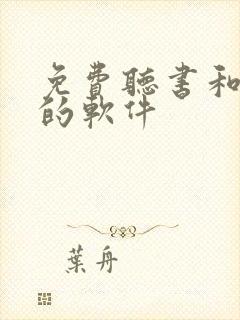 免費聽書和
的軟件
葉舟